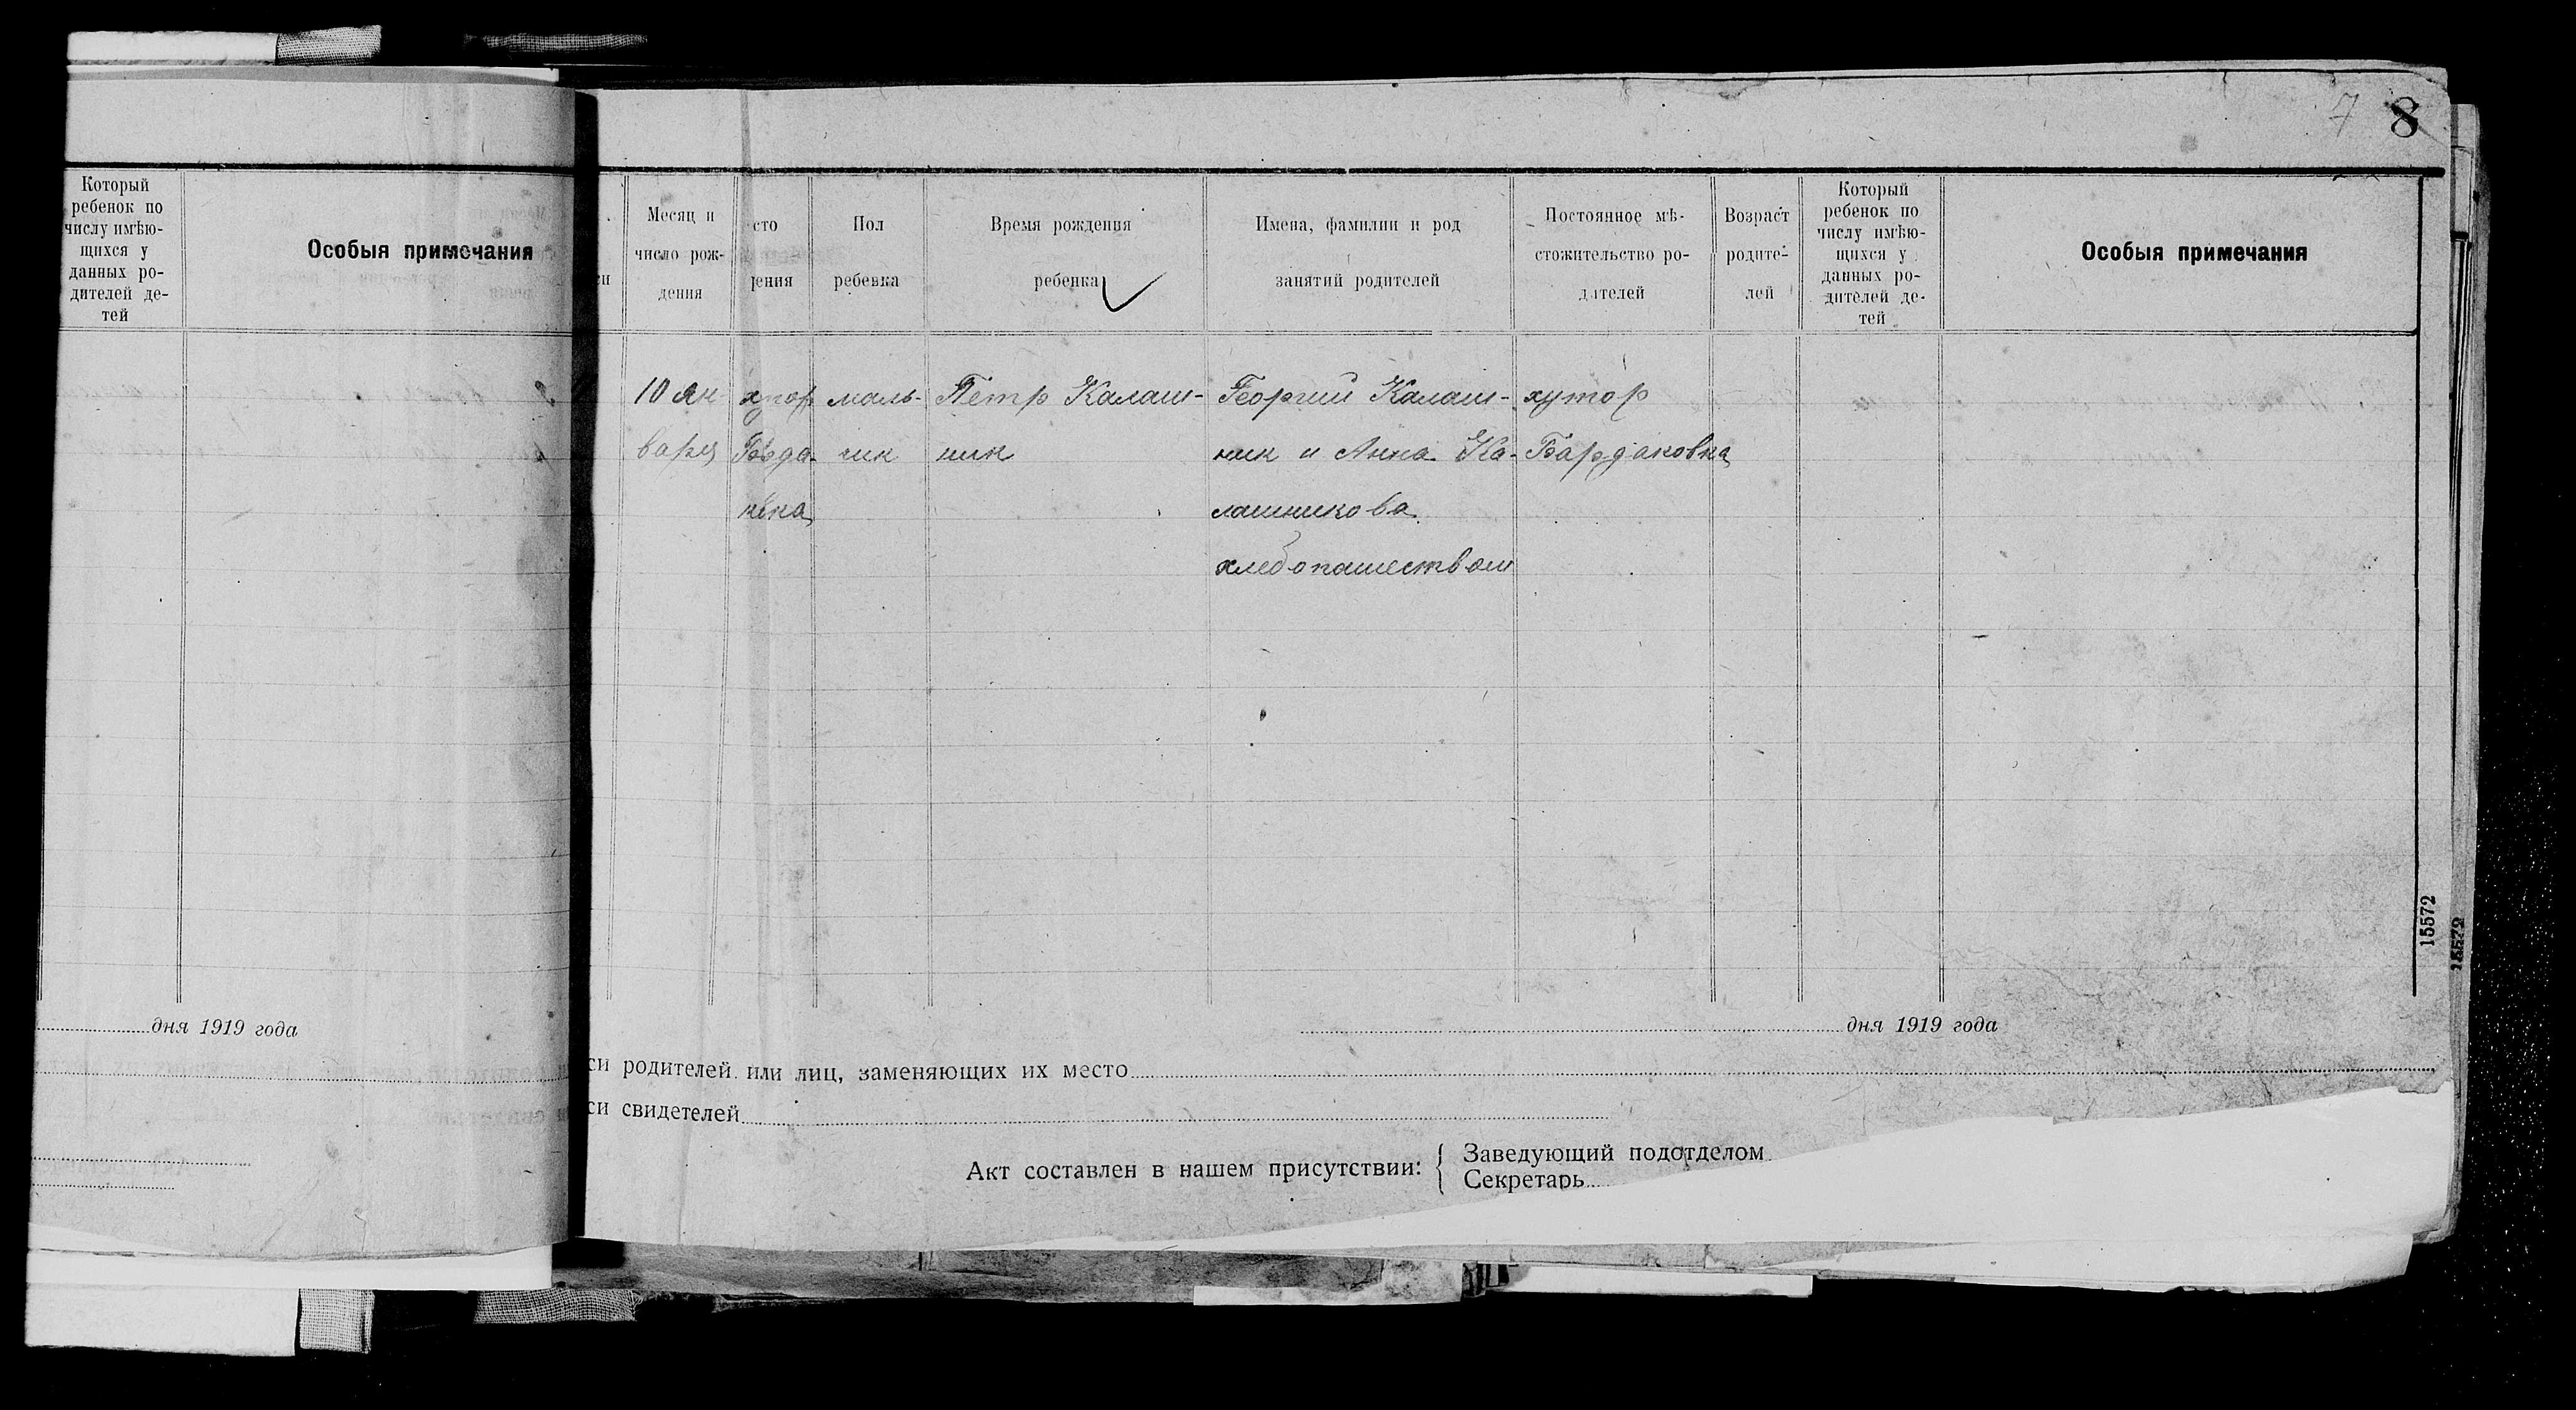 7 8
Который
ребенок по
числу имѣю-
щихся у
данных ро-
дителей де-
тей
Особыя примечания
дня 1919 года
Месяц и
число рож-
дения
сто
рения
Пол
ребенка
Время рождения
ребенка
Имена, фамилии и род
занятий родителей
Постоянное мѣ-
стожительство ро-
дителей
Возраст
родите-
лей
Который
ребенок по
числу имѣю-
щихся у
данных ро-
дителей де-
тей
Особыя примечания
10 ян- хутор маль- Петр Калаш- Георгий Калаш- хутор
варя чик ник ник и Анна Ка- Бардаковка
лашникова
хлебопашеством
15572
15572
дня 1919 года
си родителей или лиц, заменяющих их место
си свидетелей
Акт составлен в нашем присутствии: { Заведующий подотделом
Секретарь